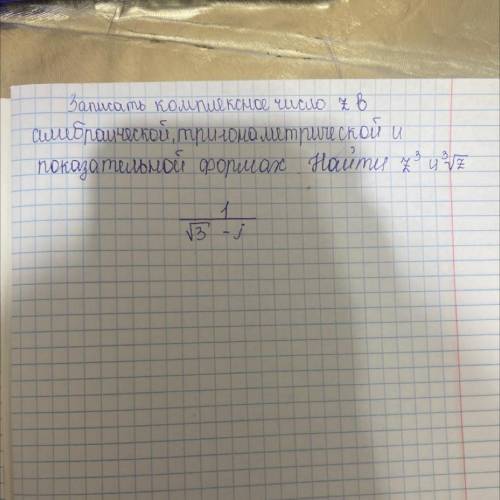 Записать комплексное число z в
алгебраической, тригонометрической и
показательной формах. Найти z³ и ∛z
1
√3 - j